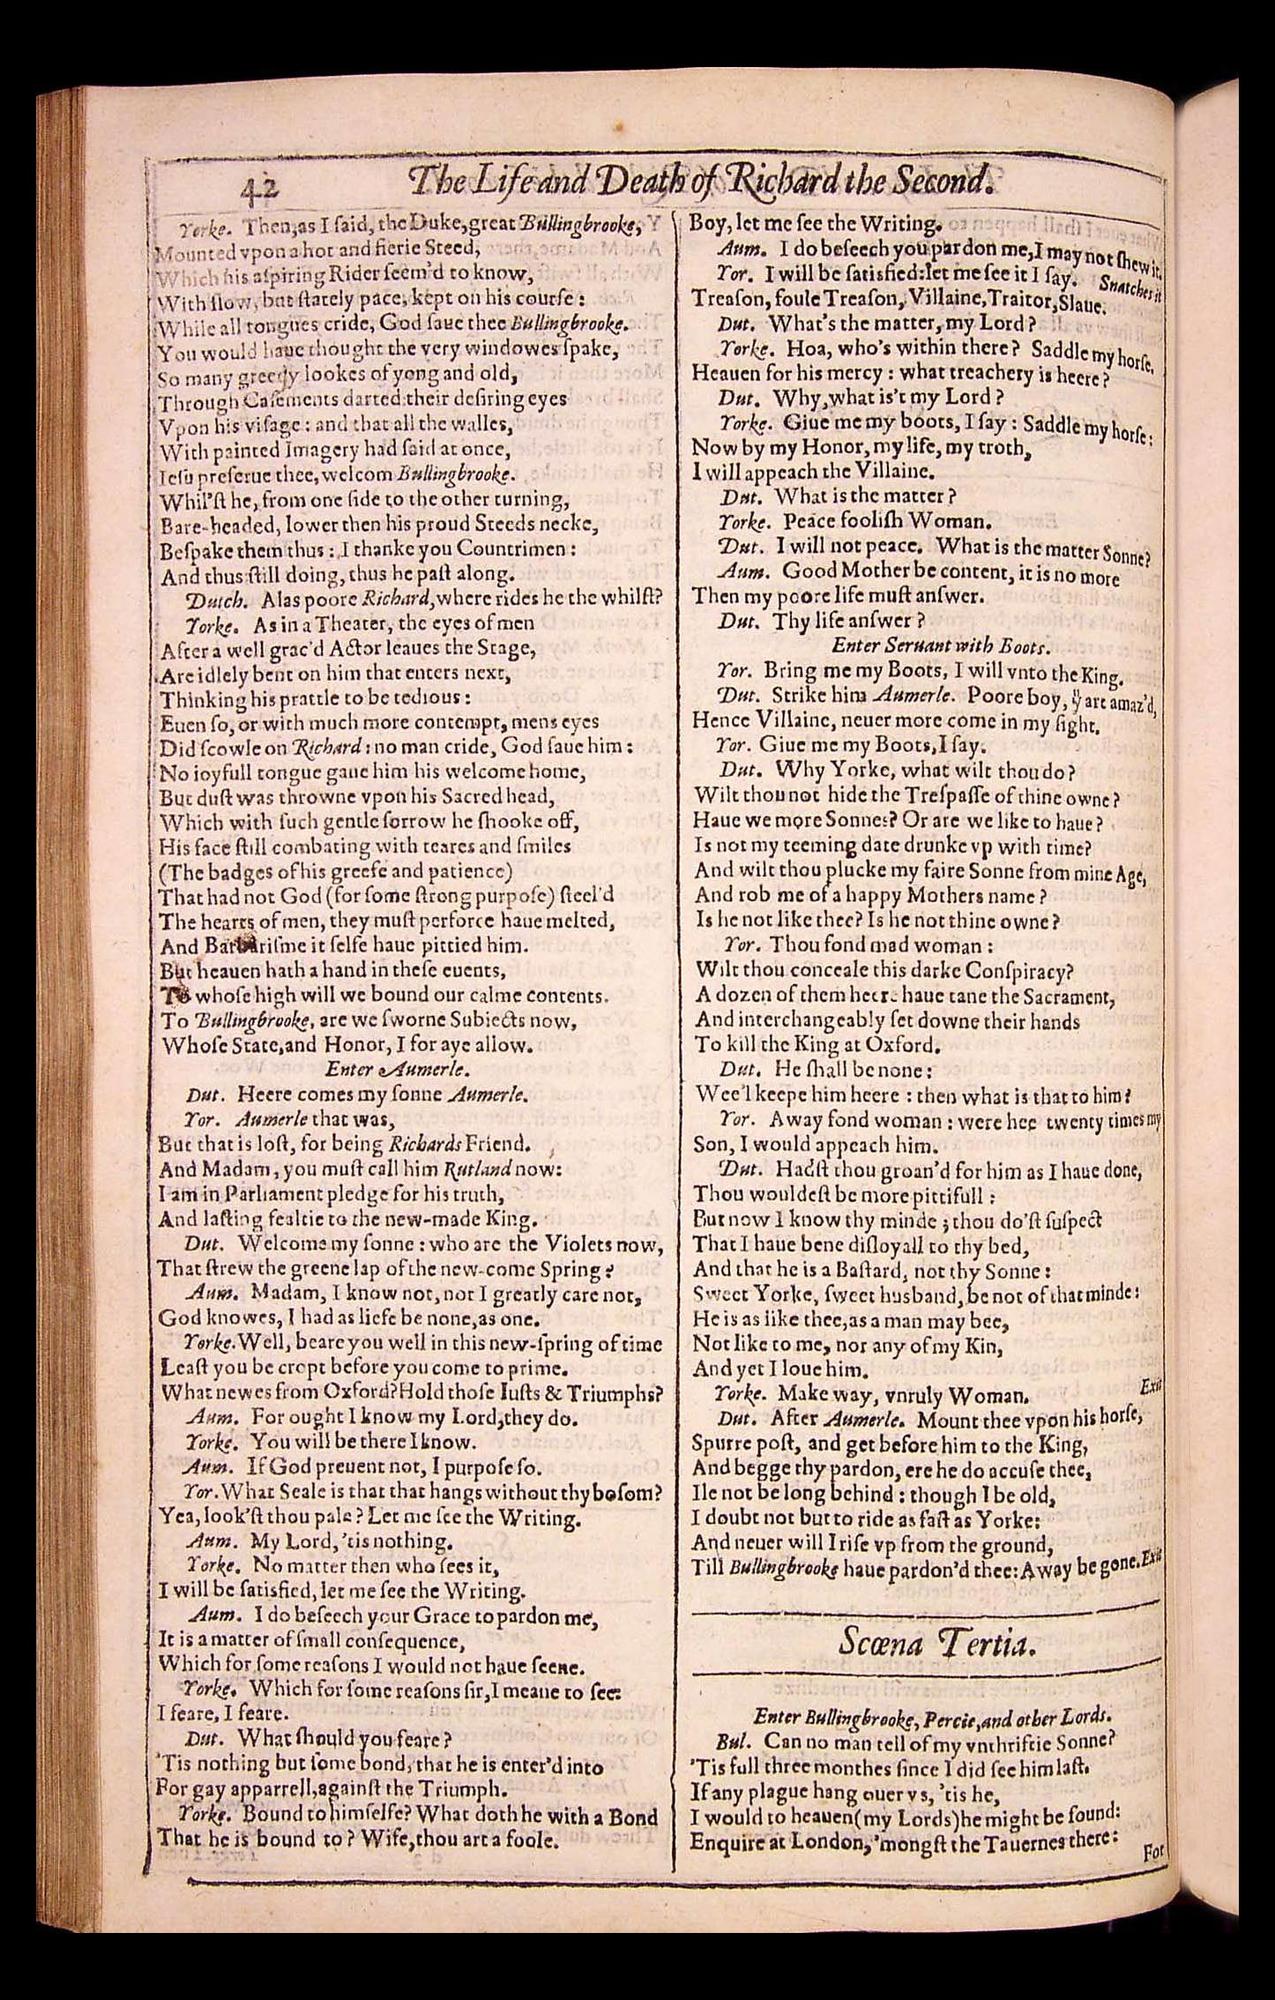 42
The Life and Death of Richard the Second.
Yorke. Then, as I ſaid, the Duke, great Bullingbrooke,
Mounted vpon a hot and fierie Steed,
Which his aſpiring Rider ſeem'd to know,
With ſlow, but ſtately pace, kept on his courſe:
While all tongues cride, God ſaue thee Bullingbrooke.
You would haue thought the very windowes ſpake,
So many greedy lookes of yong and old,
Through Caſements darted their deſiring eyes
Vpon his viſage: and that all the walles,
With painted Imagery had ſaid at once,
Ieſu preſerue thee, welcom Bullingbrooke.
Whil'ſt he, from one ſide to the other turning,
Bare-headed, lower then his proud Steeds necke,
Beſpake them thus: I thanke you Countrimen:
And thus ſtill doing, thus he paſt along.
Dutch. Alas poore Richard, where rides he the whilſt?
Yorke. As in a Theater, the eyes of men
After a well grac'd Actor leaues the Stage,
Are idlely bent on him that enters next,
Thinking his prattle to be tedious:
Euen ſo, or with much more contempt, mens eyes
Did ſcowle on Richard: no man cride, God ſaue him:
No ioyfull tongue gaue him his welcome home,
But duſt was throwne vpon his Sacred head,
Which with ſuch gentle ſorrow he ſhooke off,
His face ſtill combating with teares and ſmiles
(The badges of his greefe and patience)
That had not God (for ſome ſtrong purpoſe) ſteel'd
The hearts of men, they muſt perforce haue melted,
And Barbariſme it ſelfe haue pittied him.
But heauen hath a hand in theſe euents,
To whoſe high will we bound our calme contents.
To Bullingbrooke, are we ſworne Subiects now,
Whoſe State, and Honor, I for aye allow.
Enter Aumerle.
Dut. Heere comes my ſonne Aumerle.
Yor. Aumerle that was,
But that is loſt, for being Richards Friend.
And Madam, you muſt call him Rutland now:
I am in Parliament pledge for his truth,
And laſting fealtie to the new-made King.
Dut. Welcome my ſonne: who are the Violets now,
That ſtrew the greene lap of the new-come Spring?
Aum. Madam, I know not, nor I greatly care not,
God knowes, I had as liefe be none, as one.
Yorke. Well, beare you well in this new-ſpring of time
Leaſt you be cropt before you come to prime.
What newes from Oxford? Hold thoſe Iuſts & Triumphs?
Aum. For ought I know my Lord, they do.
Yorke. You will be there I know.
Aum. If God preuent not, I purpoſe ſo.
Yor. What Seale is that that hangs without thy boſom?
Yea, look'ſt thou pale? Let me ſee the Writing.
Aum. My Lord, 'tis nothing.
Yorke. No matter then who ſees it,
I will be ſatisfied, let me ſee the Writing.
Aum. I do beſeech your Grace to pardon me,
It is a matter of ſmall conſequence,
Which for ſome reaſons I would not haue ſeene.
Yorke. Which for ſome reaſons ſir, I meane to ſee:
I feare, I feare.
Dut. What ſhould you feare?
'Tis nothing but ſome bond, that he is enter'd into
For gay apparrell, againſt the Triumph.
Yorke. Bound to himſelfe? What doth he with a Bond
That he is bound to? Wife, thou art a foole.
Boy, let me ſee the Writing.
Aum. I do beſeech you pardon me, I may not ſhew it.
Yor. I will be ſatisfied: let me ſee it I ſay. Snatches it
Treaſon, foule Treaſon, Villaine, Traitor, Slaue.
Dut. What's the matter, my Lord?
Yorke. Hoa, who's within there? Saddle my horſe.
Heauen for his mercy: what treachery is heere?
Dut. Why, what is't my Lord?
Yorke. Giue me my boots, I ſay: Saddle my horſe:
Now by my Honor, my life, my troth,
I will appeach the Villaine.
Dut. What is the matter?
Yorke. Peace fooliſh Woman.
Dut. I will not peace. What is the matter Sonne?
Aum. Good Mother be content, it is no more
Then my poore life muſt anſwer.
Dut. Thy life anſwer?
Enter Seruant with Boots.
Yor. Bring me my Boots, I will vnto the King.
Dut. Strike him Aumerle. Poore boy, yͧ art amaz'd,
Hence Villaine, neuer more come in my ſight.
Yor. Giue me my Boots, I ſay.
Dut. Why Yorke, what wilt thou do?
Wilt thou not hide the Treſpaſſe of thine owne?
Haue we more Sonnes? Or are we like to haue?
Is not my teeming date drunke vp with time?
And wilt thou plucke my faire Sonne from mine Age,
And rob me of a happy Mothers name?
Is he not like thee? Is he not thine owne?
Yor. Thou fond mad woman:
Wilt thou conceale this darke Conſpiracy?
A dozen of them heere haue tane the Sacrament,
And interchangeably ſet downe their hands
To kill the King at Oxford.
Dut. He ſhall be none:
Wee'l keepe him heere: then what is that to him?
Yor. Away fond woman: were hee twenty times my
Son, I would appeach him.
Dut. Hadſt thou groan'd for him as I haue done,
Thou wouldeſt be more pittifull:
But now I know thy minde; thou do'ſt ſuſpect
That I haue bene diſloyall to thy bed,
And that he is a Baſtard, not thy Sonne:
Sweet Yorke, ſweet husband, be not of that minde:
He is as like thee, as a man may bee,
Not like to me, nor any of my Kin,
And yet I loue him.
Yorke. Make way, vnruly Woman. Exit
Dut. After Aumerle. Mount thee vpon his horſe,
Spurre poſt, and get before him to the King,
And begge thy pardon, ere he do accuſe thee,
Ile not be long behind: though I be old,
I doubt not but to ride as faſt as Yorke:
And neuer will I riſe vp from the ground,
Till Bullingbrooke haue pardon'd thee: Away be gone. Exit
Scœna Tertia.
Enter Bullingbrooke, Percie, and other Lords.
Bul. Can no man tell of my vnthriftie Sonne?
'Tis full three monthes ſince I did ſee him laſt.
If any plague hang ouer vs, 'tis he,
I would to heauen (my Lords) he might be found:
Enquire at London, 'mongſt the Tauernes there:
For